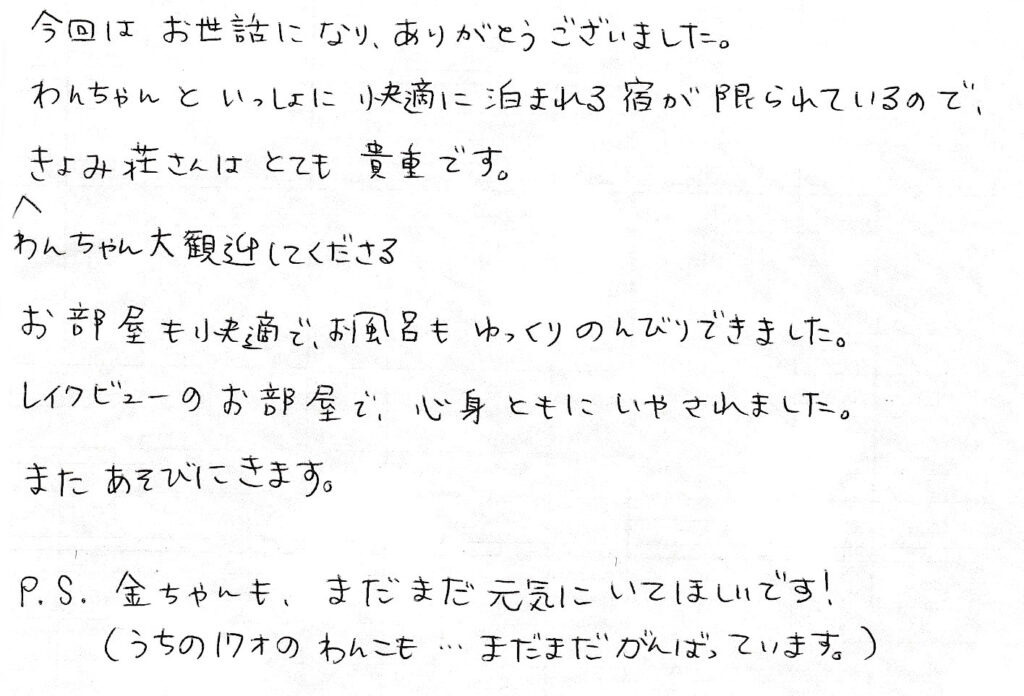 今回は お世話に なり、ありがとうございました。
わんちゃん と いっしょに 快適に 泊まれる 宿が 限られているので、
きよみ荘さんは とても 貴重です。
へ
わんちゃん大観迎してくださる
お部屋も快適で、お風呂も ゆっくりのんびりできました。
レイクビューの お部屋で、心身 ともに いやされました。
また あそびにきます。
P.S. 金ちゃんも、まだまだ 元気に いてほしいです!
(うちの17才の わんこも … まだまだ がんばっています。)